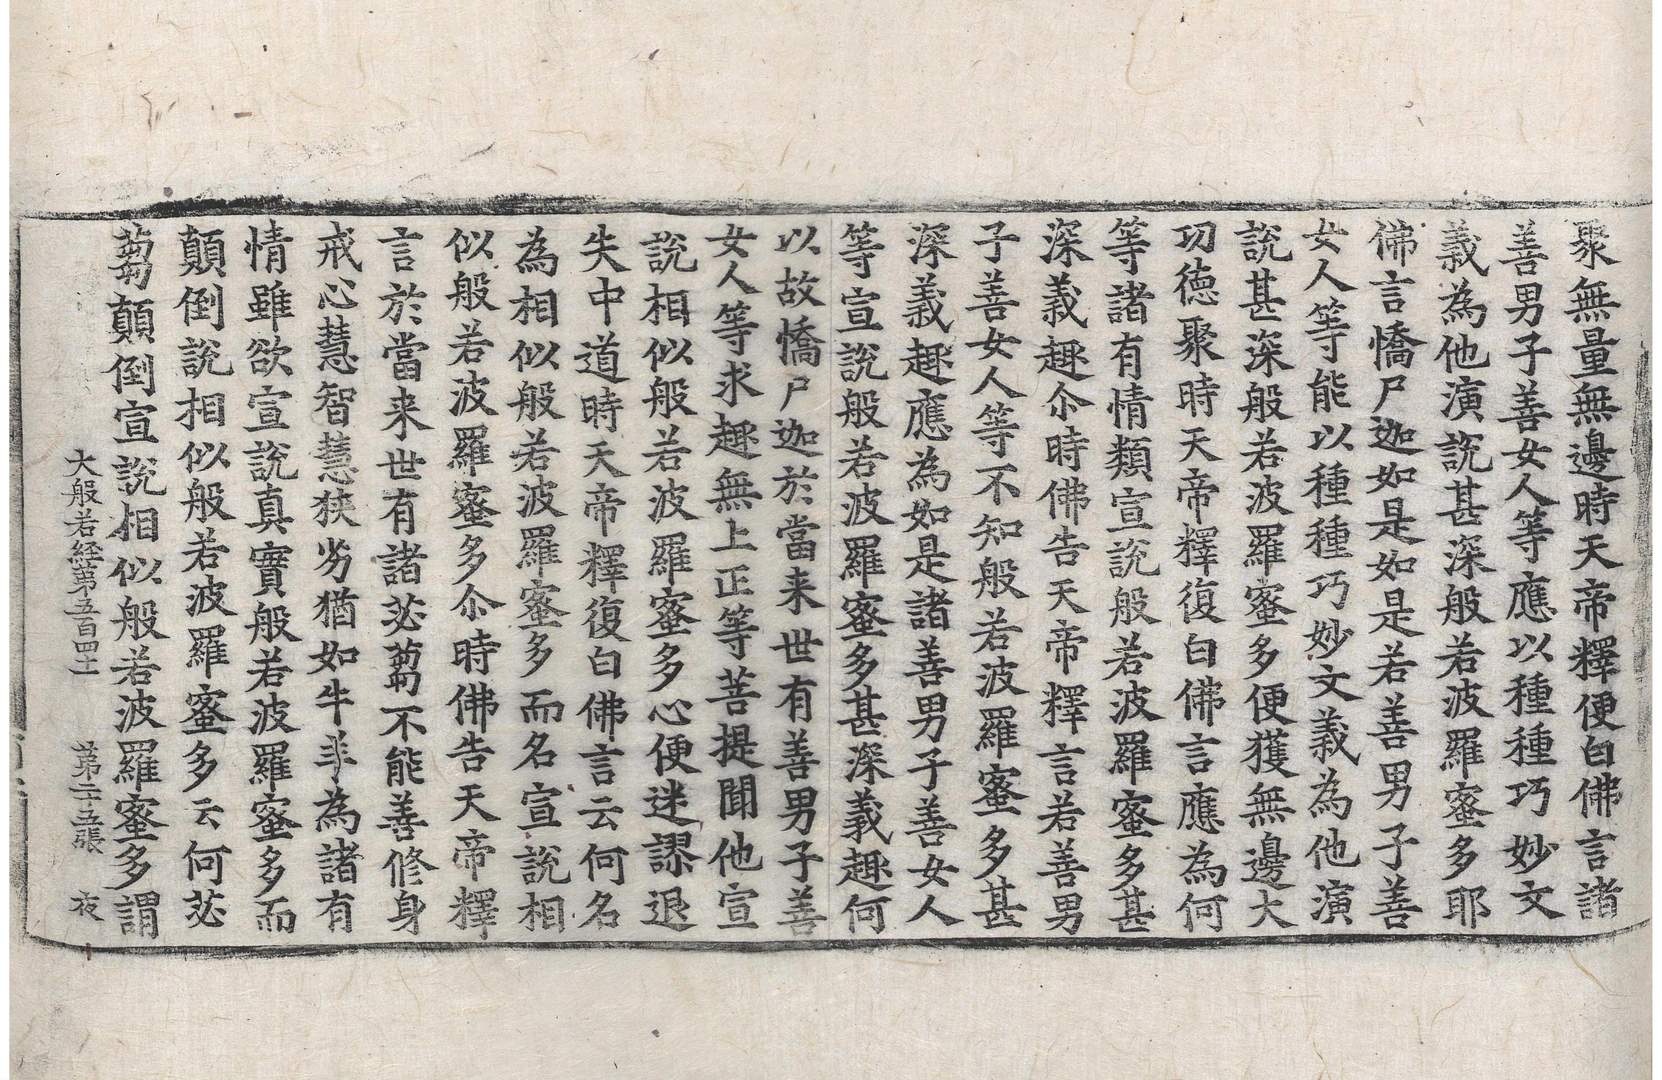 聚無量無邊時天帝釋便白佛言諸
善男子善女人等應以種種巧妙文
義為他演說甚深般若波羅蜜多耶
佛言憍尸迦如是如是若善男子善
女人等能以種種巧妙文義為他演
說甚深般若波羅蜜多便獲無邊大
功德聚時天帝釋復白佛言應為何
等諸有情類宣說般若波羅蜜多甚
深義趣尒時佛告天帝釋言若善男
子善女人等不知般若波羅蜜多甚
深義趣應為如是諸善男子善女人
等宣說般若波羅蜜多甚深義趣何
以故憍尸迦於當来世有善男子善
女人等求趣無上正等菩提聞他宣
說相似般若波羅蜜多心便迷謬退
失中道時天帝釋復白佛言云何名
為相似般若波羅蜜多而名宣說相
似般若波羅蜜多尒時佛告天帝釋
言於當来世有諸苾蒭不能善修身
戒心慧智慧狹劣猶如牛羊為諸有
情雖欲宣說真實般若波羅蜜多而
顛倒說相似般若波羅蜜多云何苾
蒭顛倒宣說相似般若波羅蜜多謂
大般若経第五百四十 第二十五張 夜